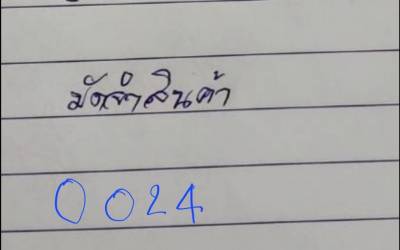 มัดจำสินค้า
0024